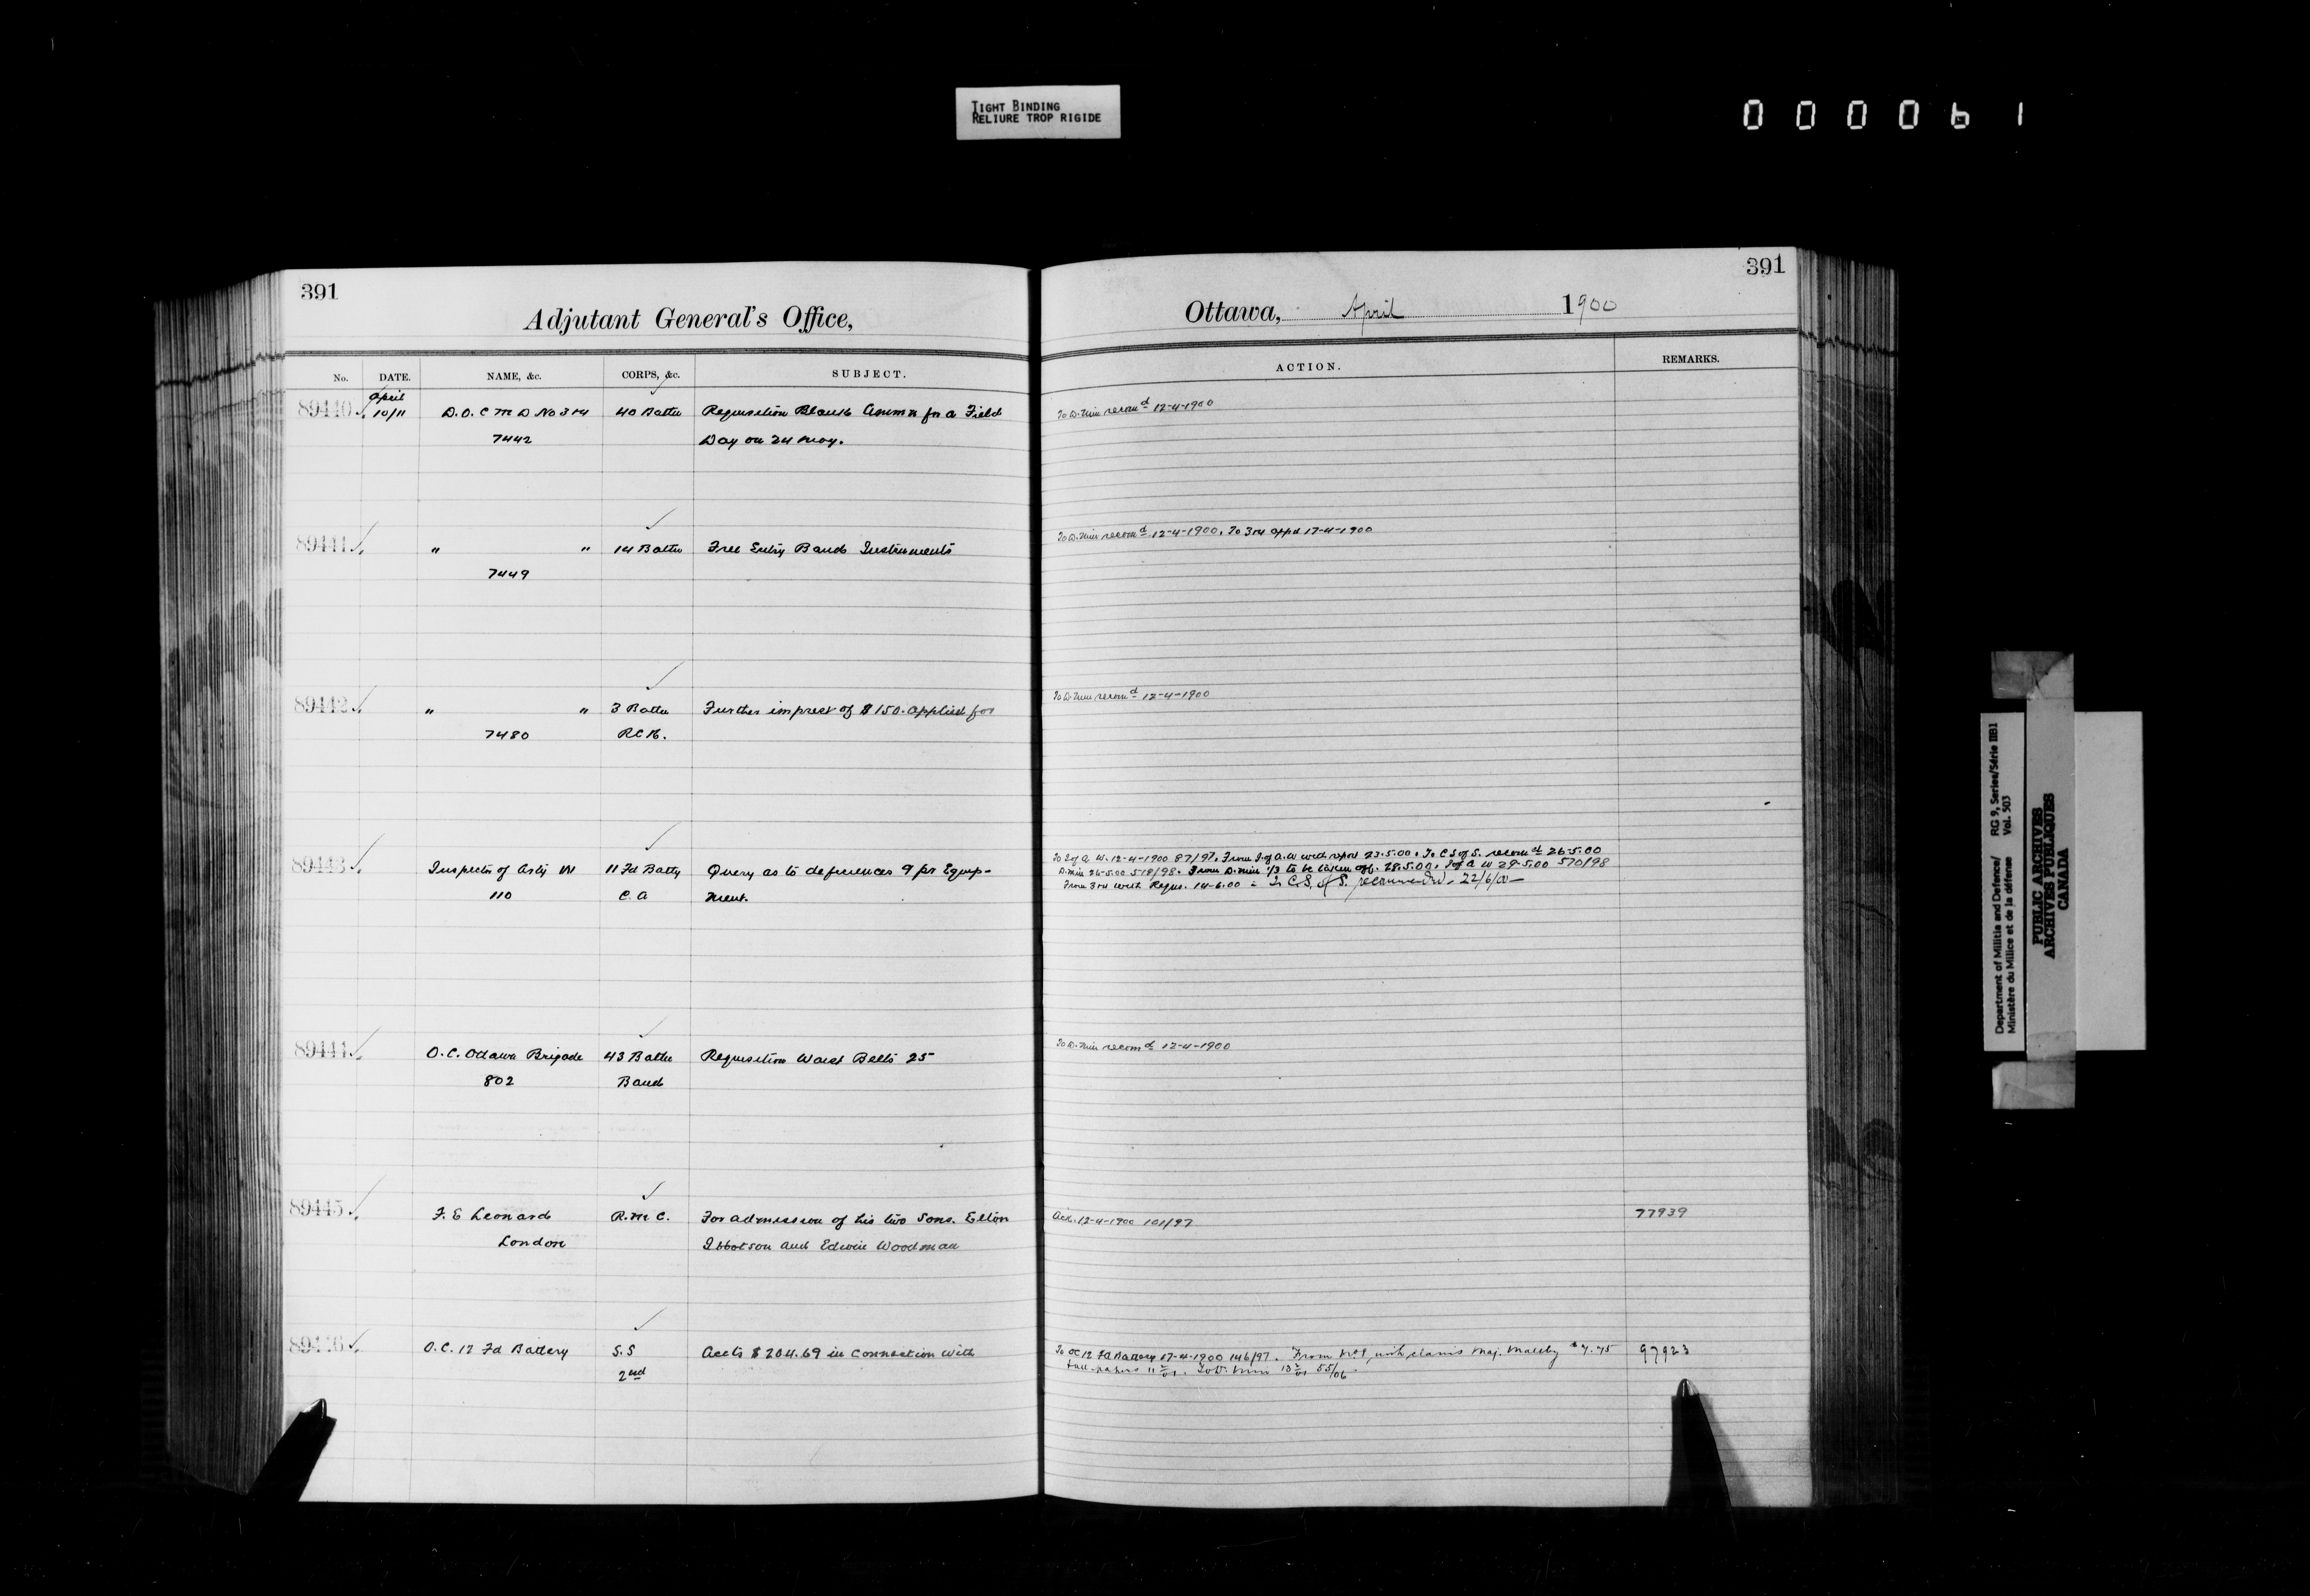 TIGHT BINDING
RELIURE TROP RIGIDE
000061
391
Adjutant General's Office,
No. DATE. NAME, &c. CORPS, &c. SUBJECT.
April
89440 10/11 D.O.C M D No 3 rd 40 Battn Requisition Blank Ammn for a Field
7442 Day on 24 May.
89441 " " 14 Battn Free Entry Band Instruments
7449
89442 " " 3 Battn Further imprest of $150. applied for
7480 RCR.
89443 Inspector of Arty W 11 Fd Batty Query as to deficiences 9 pr Equip-
110 C. A ment.
89444 O.C. Ottawa Brigade 43 Battn Requisition Waist Belts 25
802 Band
89445 F. E Leonard R.M C. For admission of his two Sons. Elton
London Ibbotson and Edwin Woodman
89446 O.C. 12 Fd Battery S.S Accts $204.69 in connection with
2nd
391
Ottawa, April 1900
ACTION. REMARKS.
To D. Min recomd 12-4-1900
To D. Min recomd 12-4-1900. To 3rd appd 17-4-1900
To D. Min recomd 12-4-1900
To I of A W. 12-4-1900 87/97. From I. of A. W with report 23.5.00. To C S of S. recomd 26.5.00
D. Min 26-5.00 518/98. From D. Min 1/3 to be taken off. 28.5.00. I of A W 29-5.00 570/98
From 3rd with Requn. 14-6.00 - To C.S. of S. recommended - 22/6/00 -
To D. Min recomd 12-4-1900
Ack. 12-4-1900 101/97 77939
To OC 12 Fd Battery 17-4-1900 146/97. From No 1, with claims Maj. $7.45 97923
55/06
Department of Militia and Defence/ RG 9, Series/Série IIB1
Ministère du Milice et de la défense Vol. 503
PUBLIC ARCHIVES
ARCHIVES PUBLIQUES
CANADA